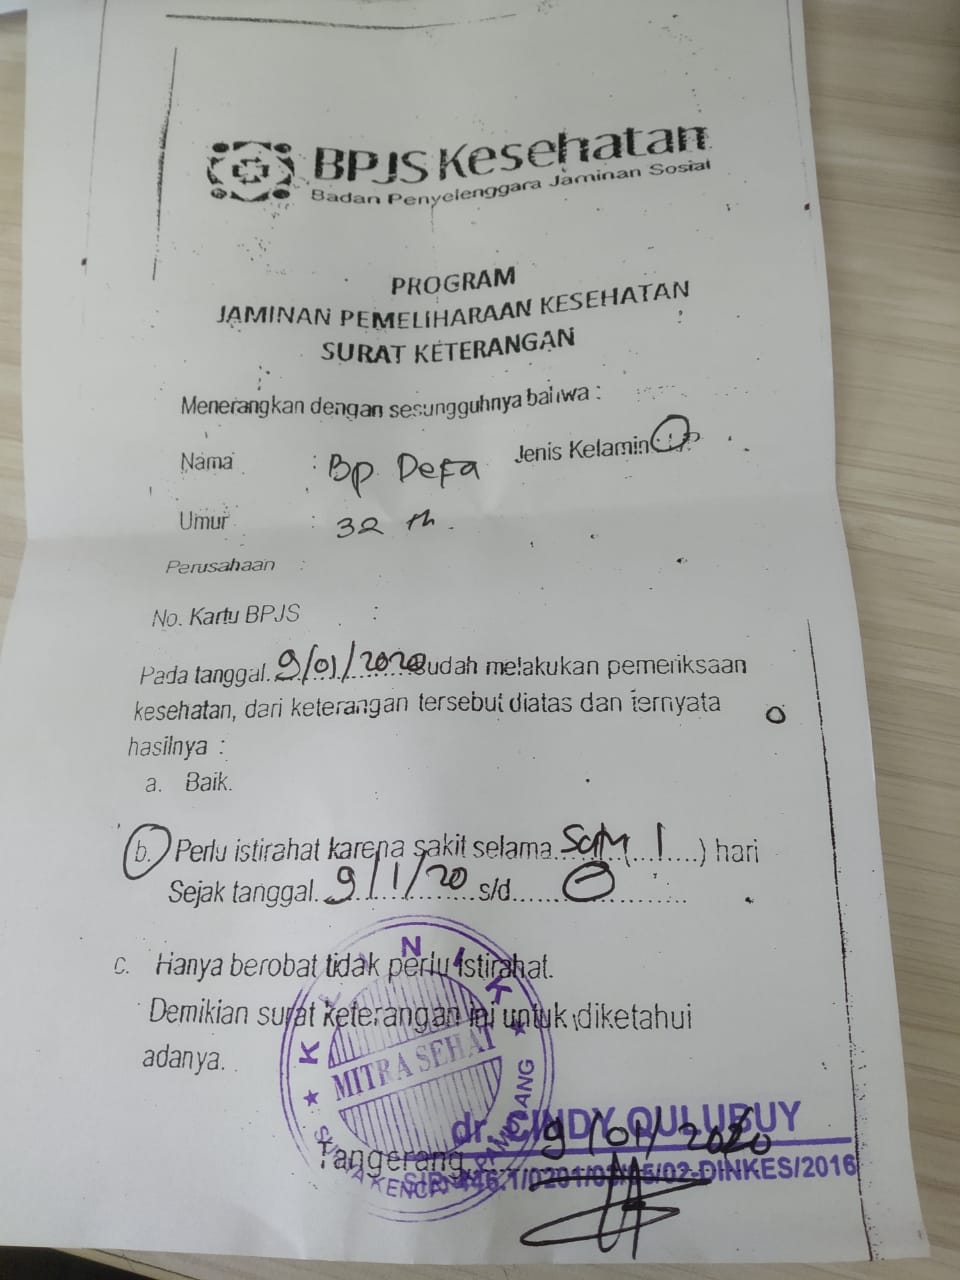 BPJS Kesehatan
Badan Penyelenggara Jaminan Sosial
PROGRAM
JAMINAN PEMELIHARAAN KESEHATAN
SURAT KETERANGAN
Menerangkan dengan sesungguhnya bahwa :
Nama : Bp Defa Jenis Kelamin
Umur : 32 th.
Perusahaan :
No. Kartu BPJS :
Pada tanggal. 9/01/2020 sudah melakukan pemeriksaan
kesehatan, dari keterangan tersebut diatas dan ternyata
hasilnya :
a. Baik.
b. Perlu istirahat karena sakit selama Satu (1) hari
Sejak tanggal. 9/1/20 s/d
c. Hanya berobat tidak perlu istirahat.
Demikian surat keterangan ini untuk diketahui
adanya.
KLINIK
MITRA SEHAT
dr. CINDY QULUBUY
Tangerang, 9/01/2020
DINKES/2016